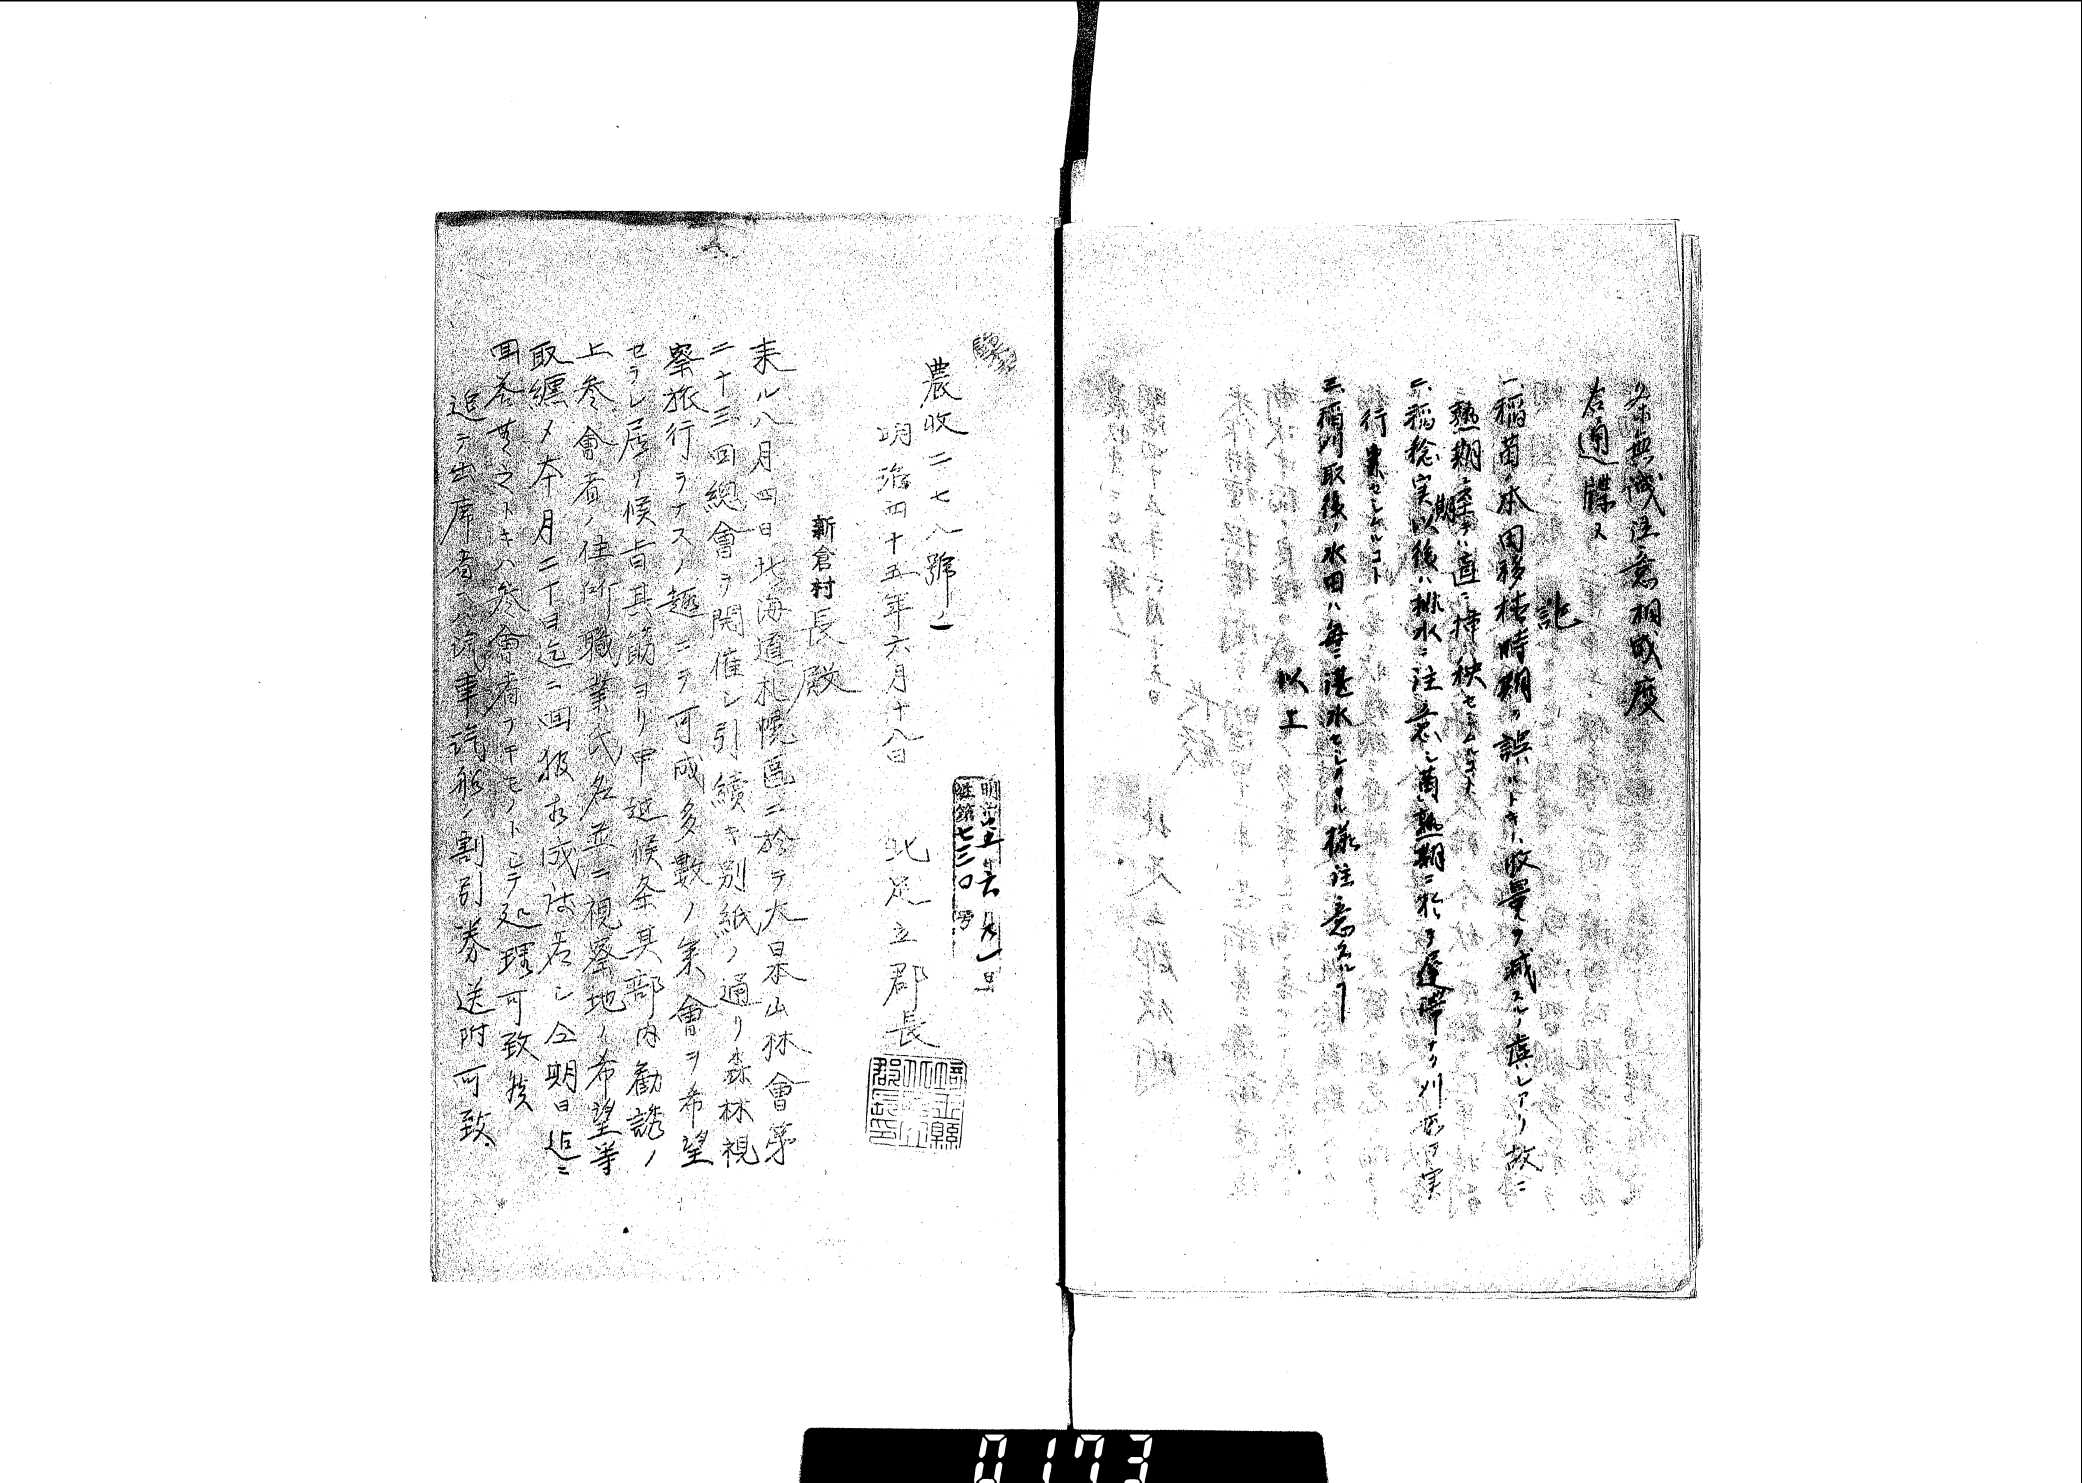 条無洩注意相成度
右通牒ス
記
一、稲苗ノ本田移植時期ヲ誤ルトキハ收量ヲ減スルノ虞レアリ故ニ
熟期ニ達セハ直ニ挿秧セシムルコト
二、稲稔実以後ハ排水ニ注意シ黄熟期ニ於テ遅滞ナク刈取ヲ実
行セシムルコト
三、稲刈取後ノ水田ハ毎ニ湛水セシメサル様注意スルコト
以上
農收二七八號ノ一
明治四十五年六月十八日
北足立郡長
埼玉縣北足立郡長印
第七三〇号
新倉村長殿
来ル八月四日北海道札幌區ニ於テ大日本山林會第
二十三回總會ヲ開催シ引續キ別紙ノ通リ森林視
察旅行ヲナスノ趣ニテ可成多數ノ来會ヲ希望
セラレ居リ候旨其筋ヨリ申越候条其部内勧誘ノ
上参會者ノ住所職業氏名並ニ視察地ノ希望等
取纒メ本月二十日迄ニ回報相成度若シ仝期日迄ニ
回答無之トキハ参會者ナキモノトシテ処理可致候
追テ出席者ニハ汽車汽船ノ割引券送附可致
0173